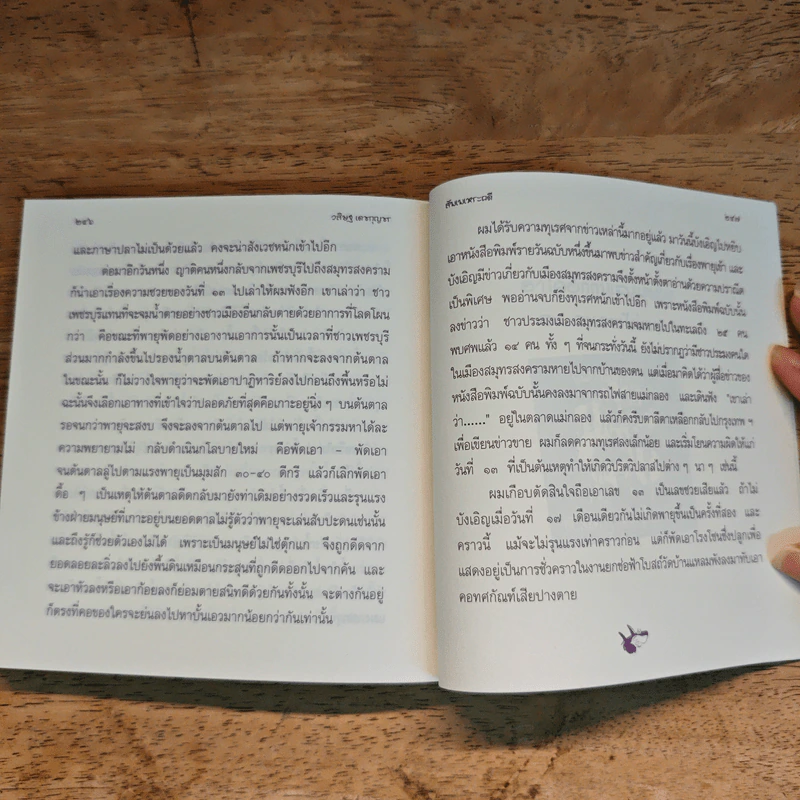 ๒๔๖
วสิษฐ เดชกุญชร
และภาษาปลาไม่เป็นด้วยแล้ว คงจะน่าสังเวชหนักเข้าไปอีก
ต่อมาอีกวันหนึ่ง ญาติคนหนึ่งกลับจากเพชรบุรีไปถึงสมุทรสงคราม
ก็นำเอาเรื่องความซวยของวันที่ ๑๓ ไปเล่าให้ผมฟังอีก เขาเล่าว่า ชาว
เพชรบุรีแทนที่จะจมน้ำตายอย่างชาวเมืองอื่นกลับตายด้วยอาการที่โลดโผน
กว่า คือขณะที่พายุพัดอย่างเอางานเอาการนั้นเป็นเวลาที่ชาวเพชรบุรี
ส่วนมากกำลังขึ้นไปรองน้ำตาลบนต้นตาล ถ้าหากจะลงจากต้นตาล
ในขณะนั้น ก็ไม่วางใจพายุว่าจะพัดเอาปาฏิหาริย์ลงไปก่อนถึงพื้นหรือไม่
ฉะนั้นจึงเลือกเอาทางที่เข้าใจว่าปลอดภัยที่สุดคือเกาะอยู่นิ่ง ๆ บนต้นตาล
รอจนกว่าพายุจะสงบ จึงจะลงจากต้นตาลไป แต่พายุเจ้ากรรมหาได้ละ
ความพยายามไม่ กลับดำเนินกโลบายใหม่ คือพัดเอา – พัดเอา
จนต้นตาลลู่ไปตามแรงพายุเป็นมุมสัก ๓๐-๔๐ ดีกรี แล้วก็เลิกพัดเอา
ดื้อ ๆ เป็นเหตุให้ต้นตาลดีดกลับมายังท่าเดิมอย่างรวดเร็วและรุนแรง
ข้างฝ่ายมนุษย์ที่เกาะอยู่บนยอดตาลไม่รู้ตัวว่าพายุจะเล่นสับปะดนเช่นนั้น
และถึงรู้ก็ช่วยตัวเองไม่ได้ เพราะเป็นมนุษย์ไม่ใช่ตุ๊กแก จึงถูกดีดจาก
ยอดลอยละลิ่วลงไปยังพื้นดินเหมือนกระสุนที่ถูกดีดออกไปจากคัน และ
จะเอาหัวลงหรือเอาก้อยลงก็ย่อมตายสนิทดีด้วยกันทั้งนั้น จะต่างกันอยู่
ก็ตรงที่คอของใครจะย่นลงไปหาบั้นเอวมากน้อยกว่ากันเท่านั้น
๒๔๗
ผมได้รับความทุเรศจากข่าวเหล่านี้มากอยู่แล้ว มาวันนี้บังเอิญไปหยิบ
เอาหนังสือพิมพ์รายวันฉบับหนึ่งขึ้นมาพบข่าวสำคัญเกี่ยวกับเรื่องพายุเข้า และ
บังเอิญมีข่าวเกี่ยวกับเมืองสมุทรสงครามจึงตั้งหน้าตั้งตาอ่านด้วยความปราณีต
เป็นพิเศษ พออ่านจบก็ยิ่งทุเรศหนักเข้าไปอีก เพราะหนังสือพิมพ์ฉบับนั้น
ลงข่าวว่า ชาวประมงเมืองสมุทรสงครามจมหายไปในทะเลถึง ๒๕ คน
พบศพแล้ว ๑๔ คน ทั้ง ๆ ที่จนกระทั่งวันนี้ ยังไม่ปรากฏว่ามีชาวประมงคนใด
ในเมืองสมุทรสงครามหายไปจากบ้านของตน แต่เมื่อมาคิดได้ว่าผู้สื่อข่าวของ
หนังสือพิมพ์ฉบับนั้นคงลงมาจากรถไฟสายแม่กลอง และเดินฟัง "เขาเล่า
ว่......" อยู่ในตลาดแม่กลอง แล้วก็คงรีบตาลีตาเหลือกกลับไปกรุงเทพ ฯ
เพื่อเขียนข่าวขาย ผมก็ลดความทุเรศลงเล็กน้อย และเริ่มโยนความผิดให้แก่
วันที่ ๑๓ ที่เป็นต้นเหตุทำให้เกิดวิปริตวิปลาสไปต่าง ๆ นา ๆ เช่นนี้
ผมเกือบตัดสินใจถือเอาเลข ๑๓ เป็นเลขซวยเสียแล้ว ถ้าไม่
บังเอิญเมื่อวันที่ ๑๗ เดือนเดียวกันไม่เกิดพายุขึ้นเป็นครั้งที่สอง และ
คราวนี้ แม้จะไม่รุนแรงเท่าคราวก่อน แต่ก็พัดเอาโรงโขนซึ่งปลูกเพื่อ
แสดงอยู่เป็นการชั่วคราวในงานยกช่อฟ้าโบสถ์วัดบ้านแหลมพังลงมาทับเอา
คอทศกัณฑ์เสียปางตาย